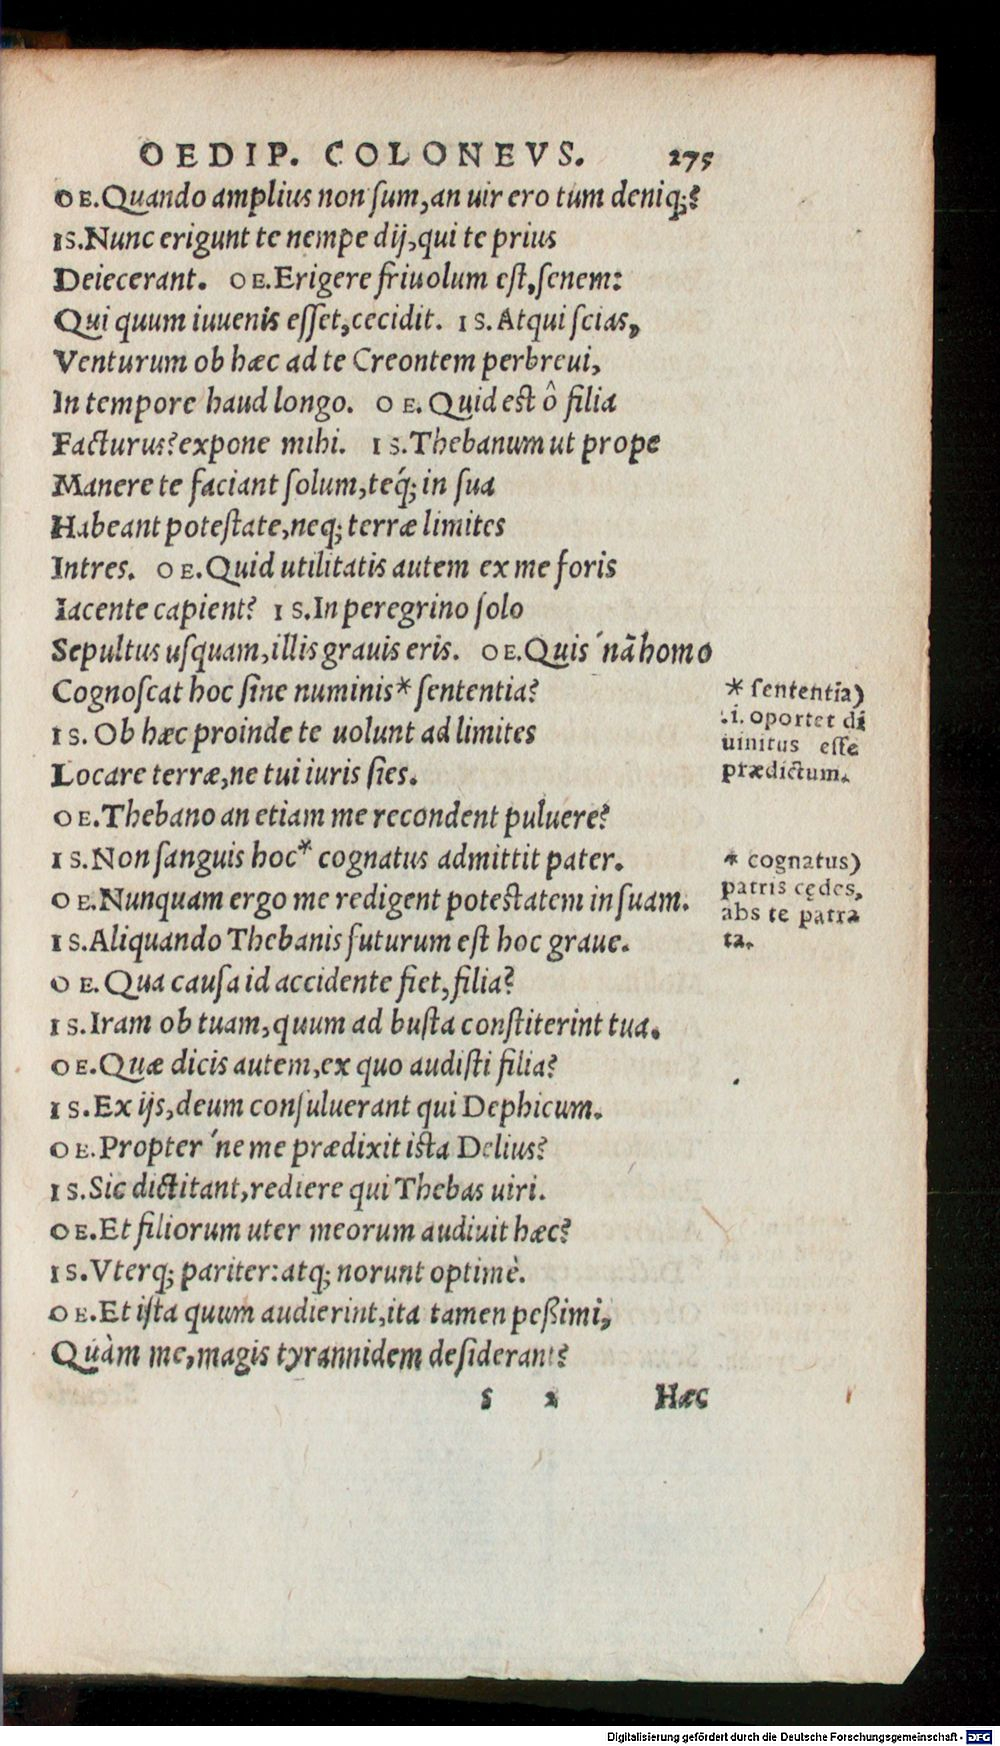 OEDIP. COLONEVS. 275
OE. Quando amplius non ſum, an uir ero tum deniq;?
IS. Nunc erigunt te nempe dij, qui te prius
Deiecerant. OE. Erigere friuolum eſt, ſenem:
Qui quum iuuenis eſſet, cecidit. IS. Atqui ſcias,
Venturum ob hæc ad te Creontem perbreui,
In tempore haud longo. OE. Quid est ô filia
Facturus? expone mihi. IS. Thebanum ut prope
Manere te faciant ſolum, teq́; in ſua
Habeant poteſtate, neq; terræ limites
Intres. OE. Quid utilitatis autem ex me foris
Iacente capient? IS. In peregrino ſolo
Sepultus uſquam, illis grauis eris. OE. Quis ´nã homo
Cognoſcat hoc ſine numinis* ſententia?
* ſententia)
.i. oportet di
uinitus eſſe
prædictum.
IS. Ob hæc proinde te uolunt ad limites
Locare terræ, ne tui iuris ſies.
OE. Thebano an etiam me recondent puluere?
IS. Non ſanguis hoc* cognatus admittit pater.
* cognatus)
patris cędes,
abs te patra
ta.
OE. Nunquam ergo me redigent potestatem in ſuam.
IS. Aliquando Thebanis futurum eſt hoc graue.
OE. Qua cauſa id accidente fiet, filia?
IS. Iram ob tuam, quum ad buſta conſtiterint tua.
OE. Quæ dicis autem, ex quo audiſti filia?
IS. Ex ijs, deum conſuluerant qui Dephicum.
OE. Propter ´ne me prædixit ista Delius?
IS. Sic dictitant, rediere qui Thebas uiri.
OE. Et filiorum uter meorum audiuit hæc?
IS. Vterq; pariter: atq; norunt optimè.
OE. Et iſta quum audierint, ita tamen peßimi,
Quàm me, magis tyrannidem deſiderant?
s 2 Hæc
Digitalisierung gefördert durch die Deutsche Forschungsgemeinschaft - DFG